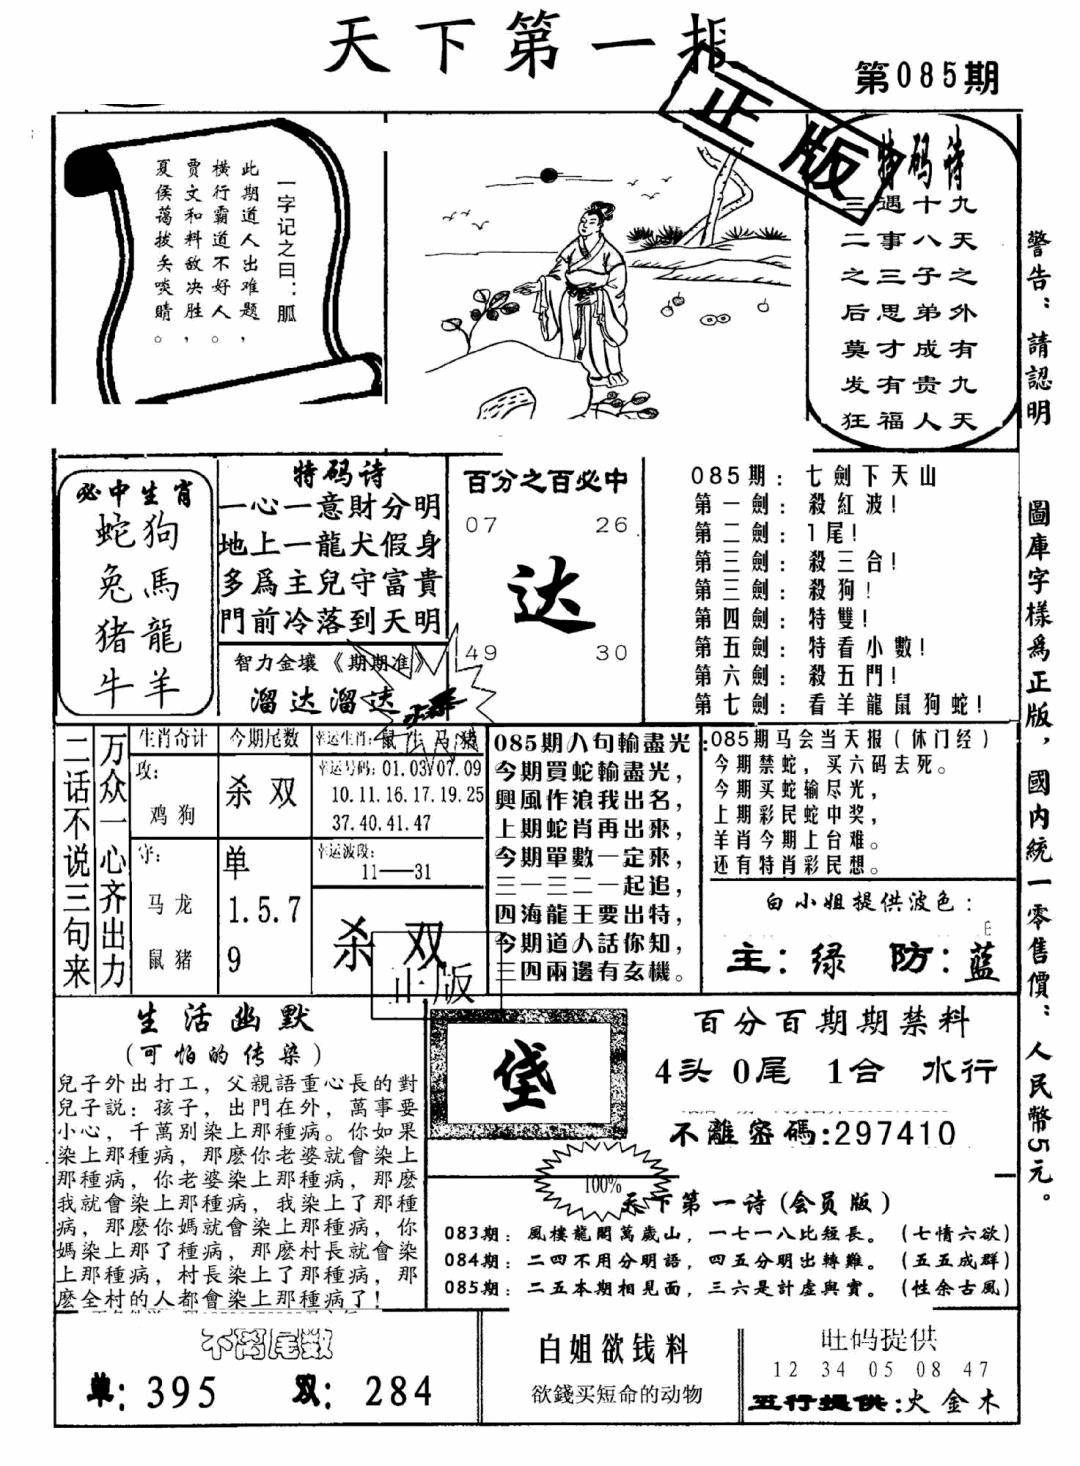 天下第一报
正版
第085期
一字记之曰：胍
此期道人出难题，
横行霸道不好人。
贾文和料敌决胜，
夏侯蔼拔矢啖睛。
特码诗
三遇十九
二事八天
之三子之
后思弟外
莫才成有
发有贵九
狂福人天
警告：請認明
圖庫字樣為正版，國内統一零售價：人民幣5元。
必中生肖
蛇狗
兔馬
猪龍
牛羊
特码诗
一心一意財分明
地上一龍犬假身
多爲主兒守富貴
門前冷落到天明
智力金壤《期期准》
溜达溜达
百分之百必中
07 26
达
49 30
085期：七劍下天山
第一劍：殺紅波!
第二劍：1尾!
第三劍：殺三合!
第三劍：殺狗!
第四劍：特雙!
第五劍：特看小數!
第六劍：殺五門!
第七劍：看羊龍鼠狗蛇!
二话不说三句来
万众一心齐出力
生肖奇计
攻：
鸡狗
守：
马龙
鼠猪
今期尾数
杀双
单
1.5.7
9
幸运生肖：鼠牛马猪
幸运号码：01.03.07.09
10.11.16.17.19.25
37.40.41.47
幸运波段：
11——31
杀双
正版
085期八句輸盡光：
今期買蛇輸盡光，
興風作浪我出名，
上期蛇肖再出來，
今期單數一定來，
三一三二一起追，
四海龍王要出特，
今期道人話你知，
三四兩邊有玄機。
085期马会当天报（休门经）
今期禁蛇，买六码去死。
今期买蛇输尽光，
上期彩民蛇中奖，
羊肖今期上台难。
还有特肖彩民想。
白小姐提供波色：
主：绿 防：蓝
生活幽默
（可怕的传染）
兒子外出打工，父親語重心長的對
兒子説：孩子，出門在外，萬事要
小心，千萬别染上那種病。你如果
染上那種病，那麽你老婆就會染上
那種病，你老婆染上那種病，那麽
我就會染上那種病，我染上了那種
病，那麽你媽就會染上那種病，你
媽染上那了種病，那麽村長就會染
上那種病，村長染上了那種病，那
麽全村的人都會染上那種病了!
垡
百分百期期禁料
4头 0尾 1合 水行
不離密碼:297410
100%
天下第一诗(会员版)
083期：風樓龍閣萬歲山，一七一八比短長。（七情六欲）
084期：二四不用分明語，四五分明出轉難。（五五成群）
085期：二五本期相見面，三六是計虛與實。（性余古風）
不离尾数
单：395 双：284
白姐欲钱料
欲錢买短命的动物
旺码提供
12 34 05 08 47
五行提供：火金木